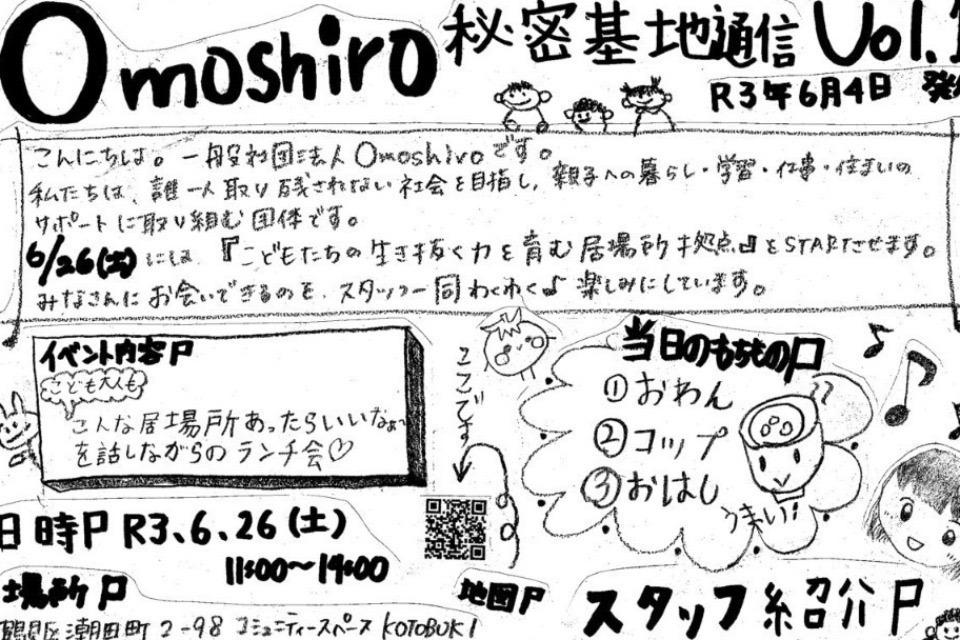 Omoshiro 秘密基地通信 Vol.1
R3年6月4日 発
こんにちは。一般社団法人Omoshiroです。
私たちは、誰一人取り残されない社会を目指し、親子への暮らし・学習・仕事・住まいの
サポートに取り組む団体です。
6/26(土)には、『こどもたちの生き抜く力を育む居場所拠点』をSTARTさせます。
みなさんにお会いできるのを、スタッフ一同わくわく♪楽しみにしています。
イベント内容
こども大人も
こんな居場所あったらいいなぁ〜
を話しながらのランチ会♡
ここです
当日のもちもの
①おわん
②コップ
③おはし
うまい!!
日時 R3.6.26(土)
11:00〜14:00
場所
鶴見区潮田町2-98 コミュニティースペース KOTOBUKI
地図
スタッフ紹介